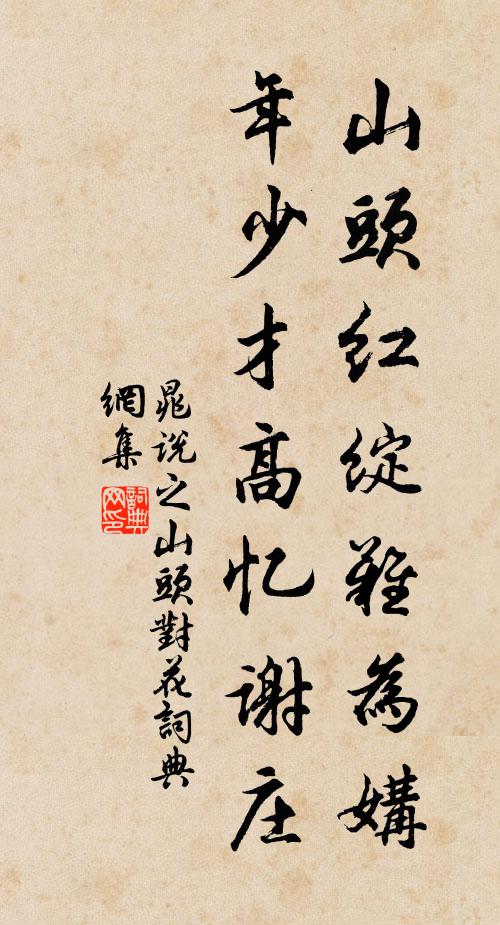 山頭红綻難為媾
年少才高忆謝庄
晁说之山頭對花詞典
網集
詞典网印